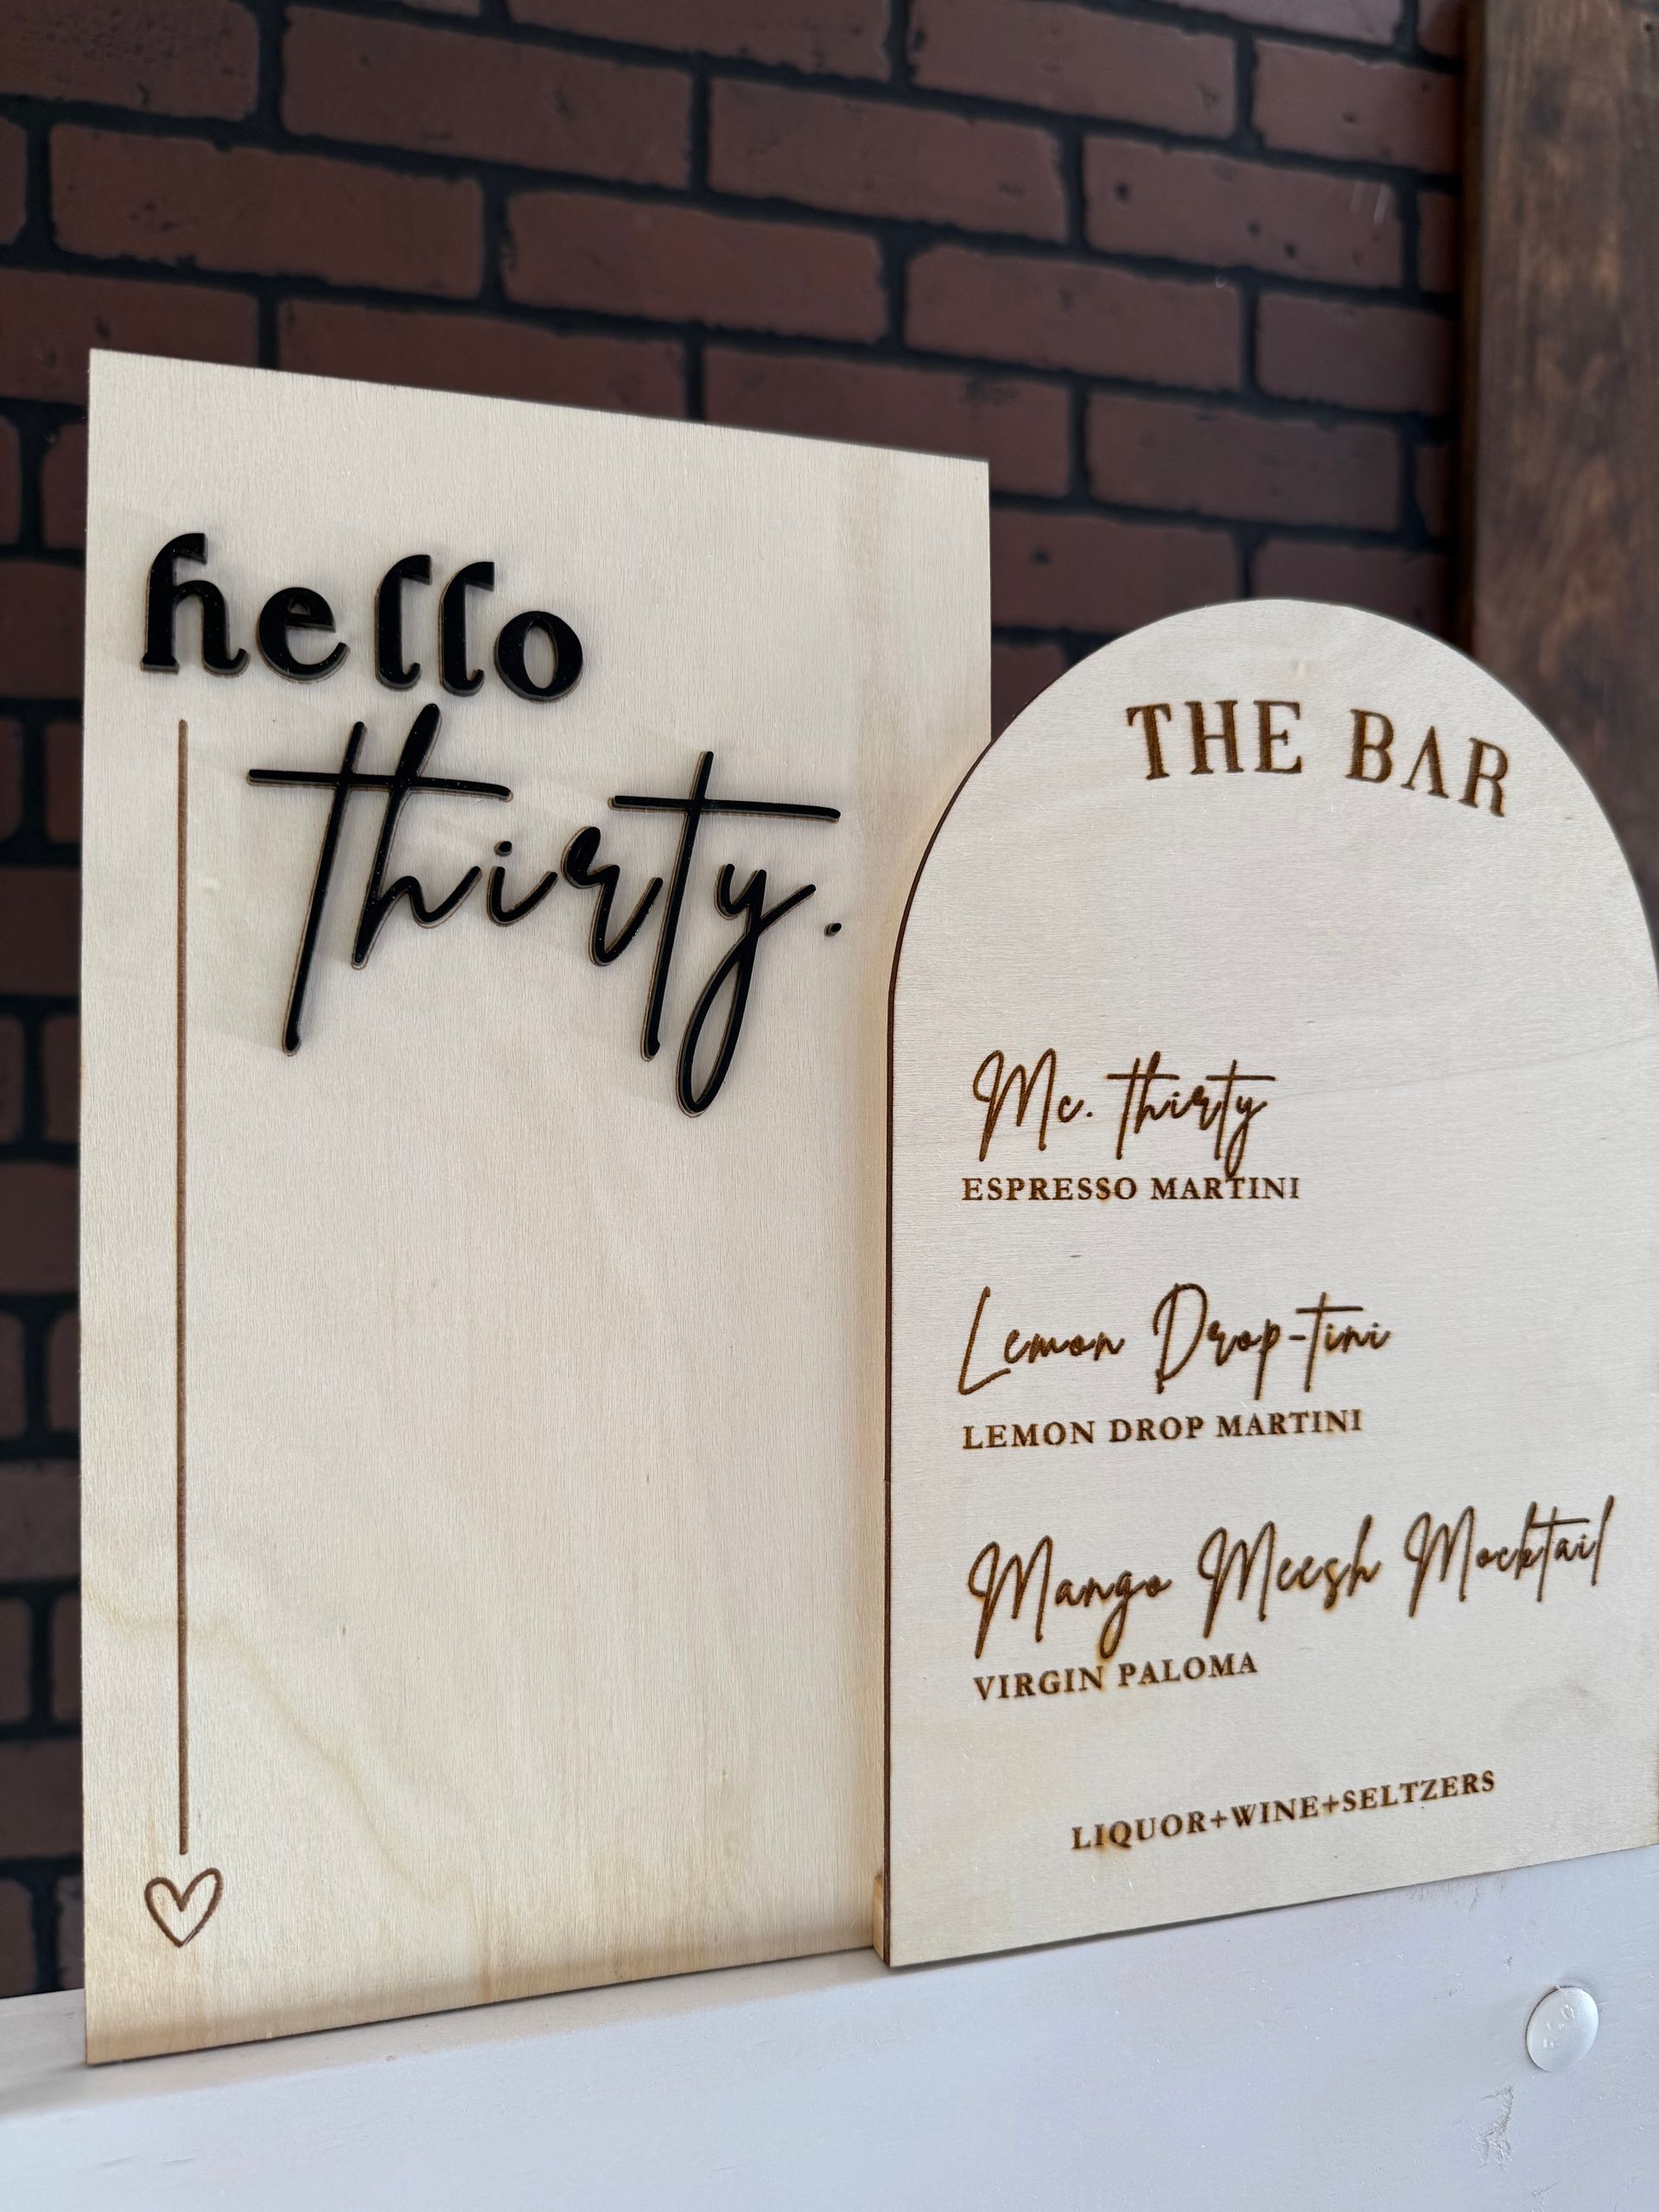 hello
thirty.
THE BAR
Mc. thirty
ESPRESSO MARTINI
Lemon Drop-tini
LEMON DROP MARTINI
Mango Meesh Mocktail
VIRGIN PALOMA
LIQUOR+WINE+SELTZERS